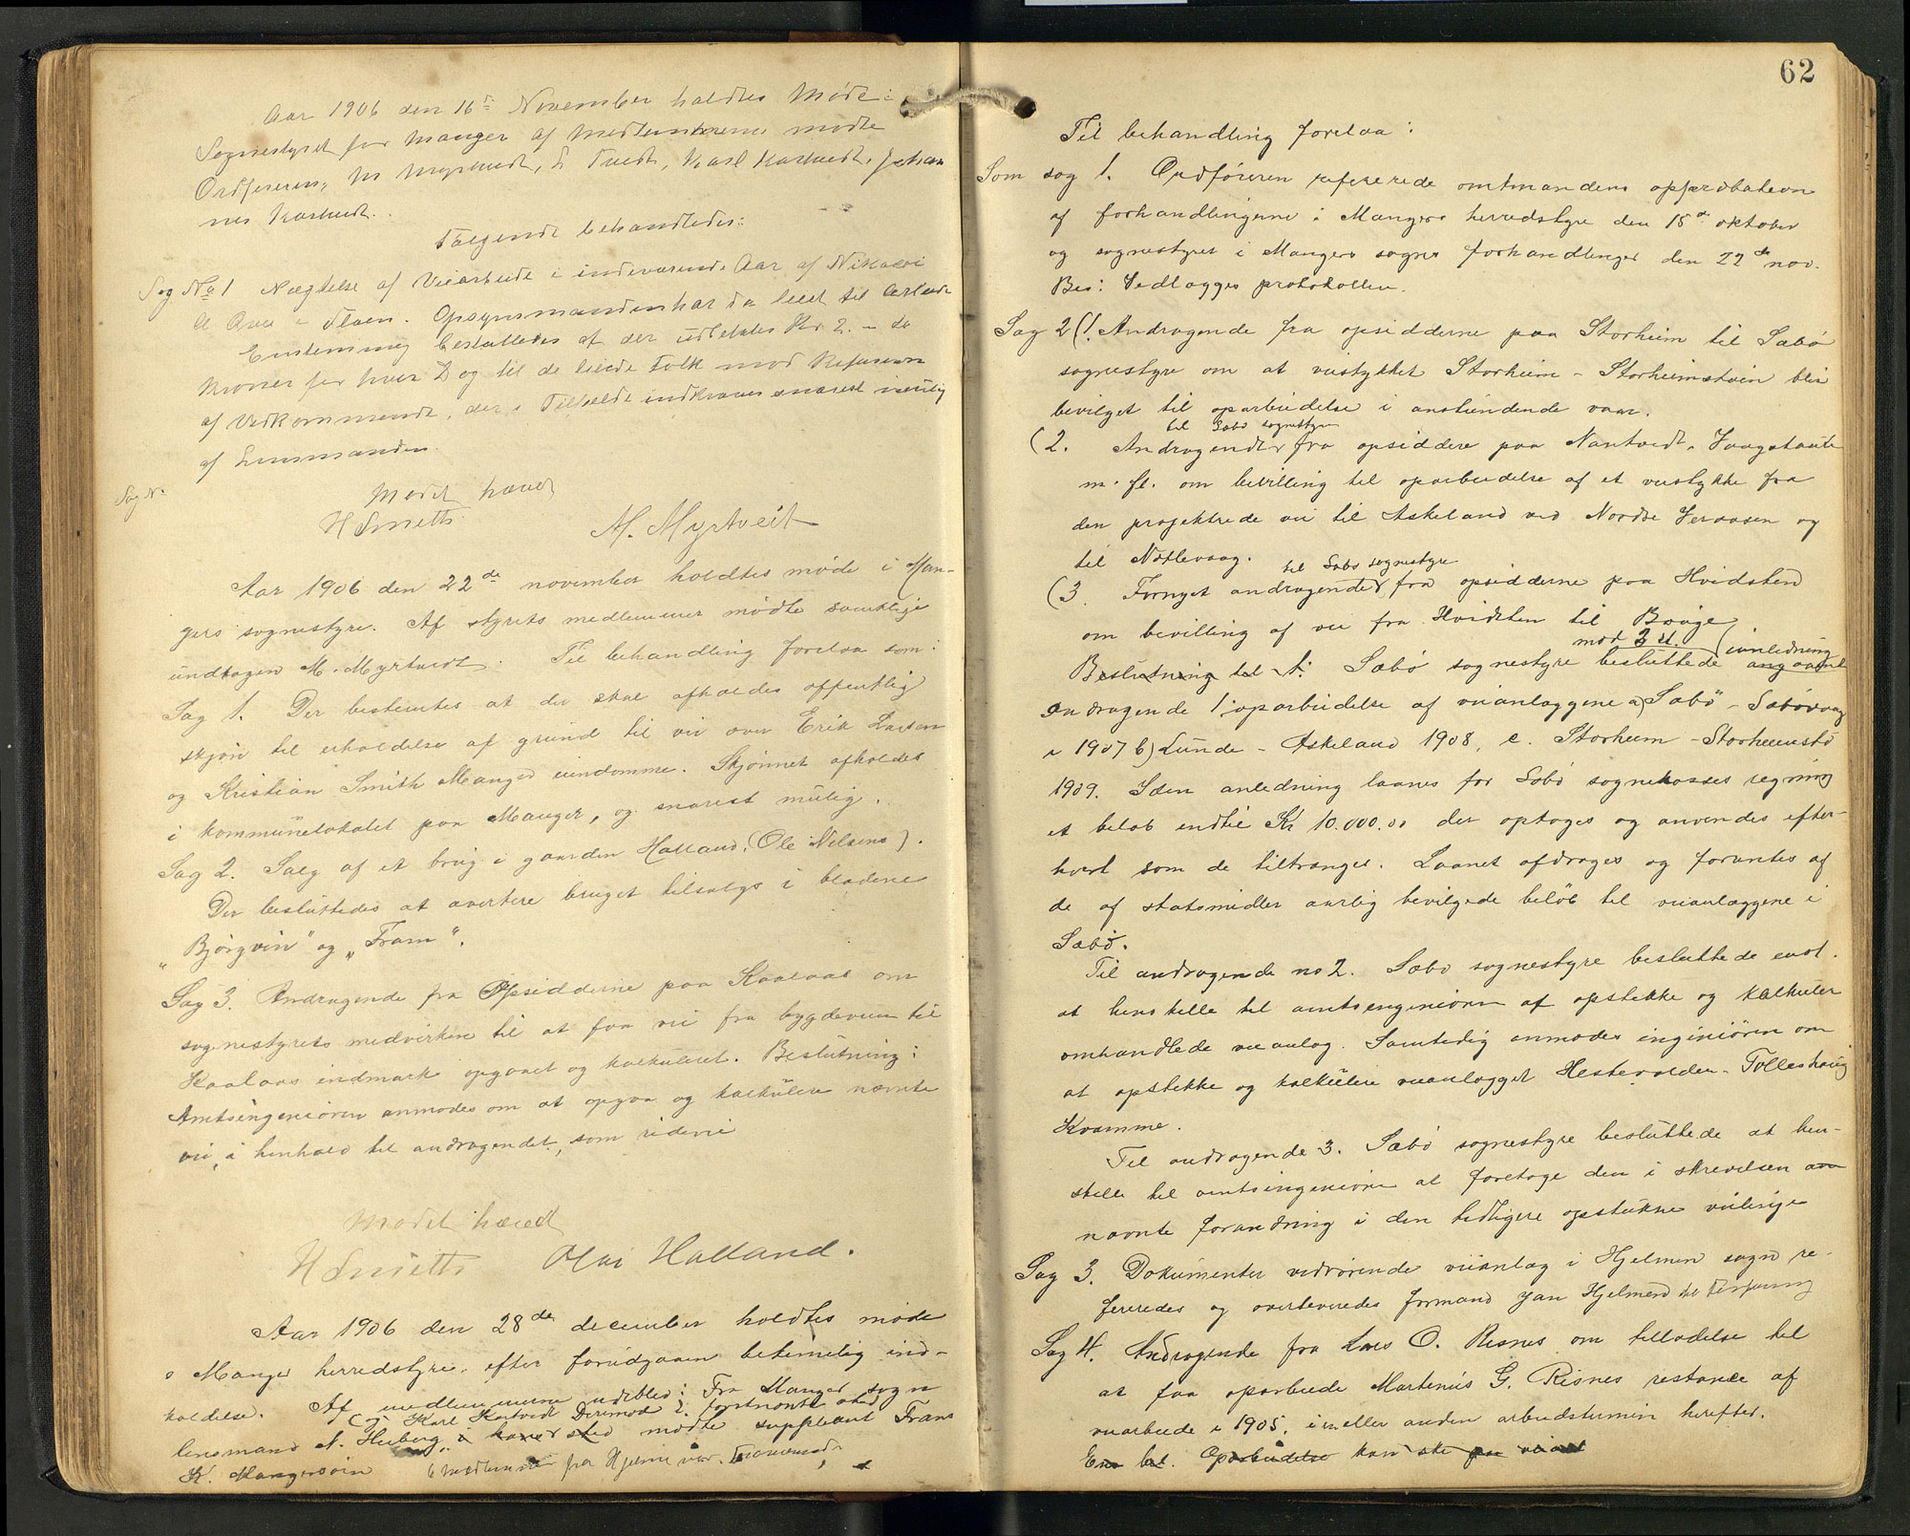 Aar 1906 den 16de November holdtes Møde i
Sognestyret for Manger af Medlemmerne mødte
Ordføreren, M Myrtvedt, L Tvedt, Karl Kartvedt, Johan
nes Kartvedt.
Følgende behandledes:
Sag No 1 Nægtelse af Veiarbeide i indeværende Aar af Nikolai
A Aase - Øen. Opsynsmanden har da leiet til Arbeide
Enstemmig besluttedes at der udbetales Kr 2. - to
Kroner for hver Dag til de leiede Folk mod Refusion
af Vedkommende, der i Tilfælde indkræves snarest mulig
af Lensmanden.
Sag N.
Mødet hævet
H Smith
M. Myrtveit
Aar 1906 den 22de november holdtes møde i Man-
gers sognestyre. Af styrets medlemmer mødte samtlige
undtagen M. Myrtvedt. Til behandling forelaa som:
Sag 1. Der bestemtes at der skal afholdes offentlig
skjøn til erholdelse af grund til vei over Erik Larsen
og Kristian Smith Manger eiendomme. Skjønnet afholdes
i kommunelokalet paa Manger, og snarest mulig.
Sag 2. Salg af et brug i gaarden Halland, (Ole Nilsens).
Der besluttedes at avertere bruget tilsalgs i bladene
„Bjørgvin" og „Fram".
Sag 3. Andragende fra Opsidderne paa Kaalaas om
sognestyrets medvirken til at faa vei fra bygdeveien til
Kaalaas indmark opgaaet og kalkuleret. Beslutning:
Amtsingeniøren anmodes om at opgaa og kalkulere nævnte
vei, i henhold til andragendet, som ridevei
Mødet hævet
H Smith Olai Halland.
Aar 1906 den 28de december holdtes møde
i Manger herredstyre, efter forudgaaen betimelig ind-
kaldelse. Af medlemmerne udeblev: Fra Manger sogn
(og Karl Kartvedt Derimod
lensmand A. Heiberg, i hans sted mødte suppleant Frans
K. Mangersøen 6 medlemmer fra Hjelme var
62
Til behandling forelaa:
Som sag 1. Ordføreren refererede amtmandens approbation
af forhandlingerne i Mangers herredstyre den 15de oktober
og sognestyret i Mangers sogns forhandlinger den 22de nov.
Bes: Vedlægges protokollen.
Sag 2 (1. Andragende fra opsidderne paa Storheim til Sæbø
sognestyre om at veistykket Storheim - Storheimstøen blir
bevilget til oparbeidelse i anstundende vaar.
til Sæbø sognestyre
(2. Andragende fra opsiddere paa Nautvedt, Vaagstaule
m. fl. om bevilling til oparbeidelse af et veistykke fra
den projektrede vei til Askeland ved Nordre Veraasen og
til Nøtlevaag.
til Sæbø sognestyre
(3. Fornyet andragende fra opsidderne paa Hvidsten
om bevilling af vei fra Hvidsten til Bøige
mod 2 st. (i anledning
Beslutning til 1: Sæbø sognestyre besluttede angaaende
andragende 1 oparbeidelse af veianlæggene a) Sæbø - Sæbøvaag
i 1907 b) Lunde - Askeland 1908, c. Storheim - Storheimstø
1909. I den anledning laanes for Sæbø sognekasses regning
et beløb indtil Kr 10.000.00 der optages og anvendes efter-
hvert som de tiltrænges. Laanet afdrages og forrentes af
de af statsmidler aarlig bevilgede beløb til veianlæggene i
Sæbø.
Til andragende no 2. Sæbø sognestyre besluttede enst.
at henstille til amtsingeniøren at opstikke og kalkulere
omhandlede veianlæg. Samtidig anmodes ingeniøren om
at opstikke og kalkulere veianlægget Hestevolden - Tolleshaug
Kvamme.
Til andragende 3. Sæbø sognestyre besluttede at hen-
stille til amtsingeniøren at foretage den i skrivelsen
nævnte forandring i den tidligere opstukne veilinje
Sag 3. Dokumenter vedrørende veianlæg i Hjelmen sogn re-
fereredes og overleveredes formand Jan Hjelmen til
Sag 4. Andragende fra Lars O. Risnes om tilladelse til
at faa oparbeide Martenus G. Risnes restance af
veiarbeide i 1905, i en eller anden arbeidstermin herefter.
Ens bes. Oparbeidelse kan ske paa